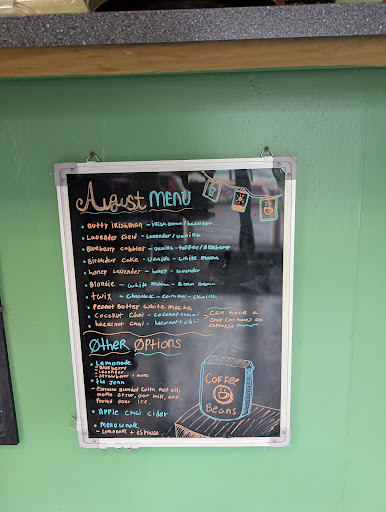 August MENU
Nutty Irishman - irish cream/hazelnut
Lavender field - Lavender/vanilla
Blueberry cobbler - vanilla - toffee/Blueberry
Birthday cake - vanilla - white mocha
honey lavender - honey - lavender
Blondie - white mocha - Brown
twix - chocolate - caramel - vanilla
Peanut Butter White mocha
Coconut chai - coconut
hazelnut chai - hazelnut chai
can have a
shot (or two) of
espresso
Other Options
Lemonade
- Blueberry
- Lavender
- Strawberry + more
the Jenn
- Espresso blended with oat milk,
maple syrup, and
Poured over ice.
Apple Chai Cider
- Lemonade + espresso
Coffee
Beans